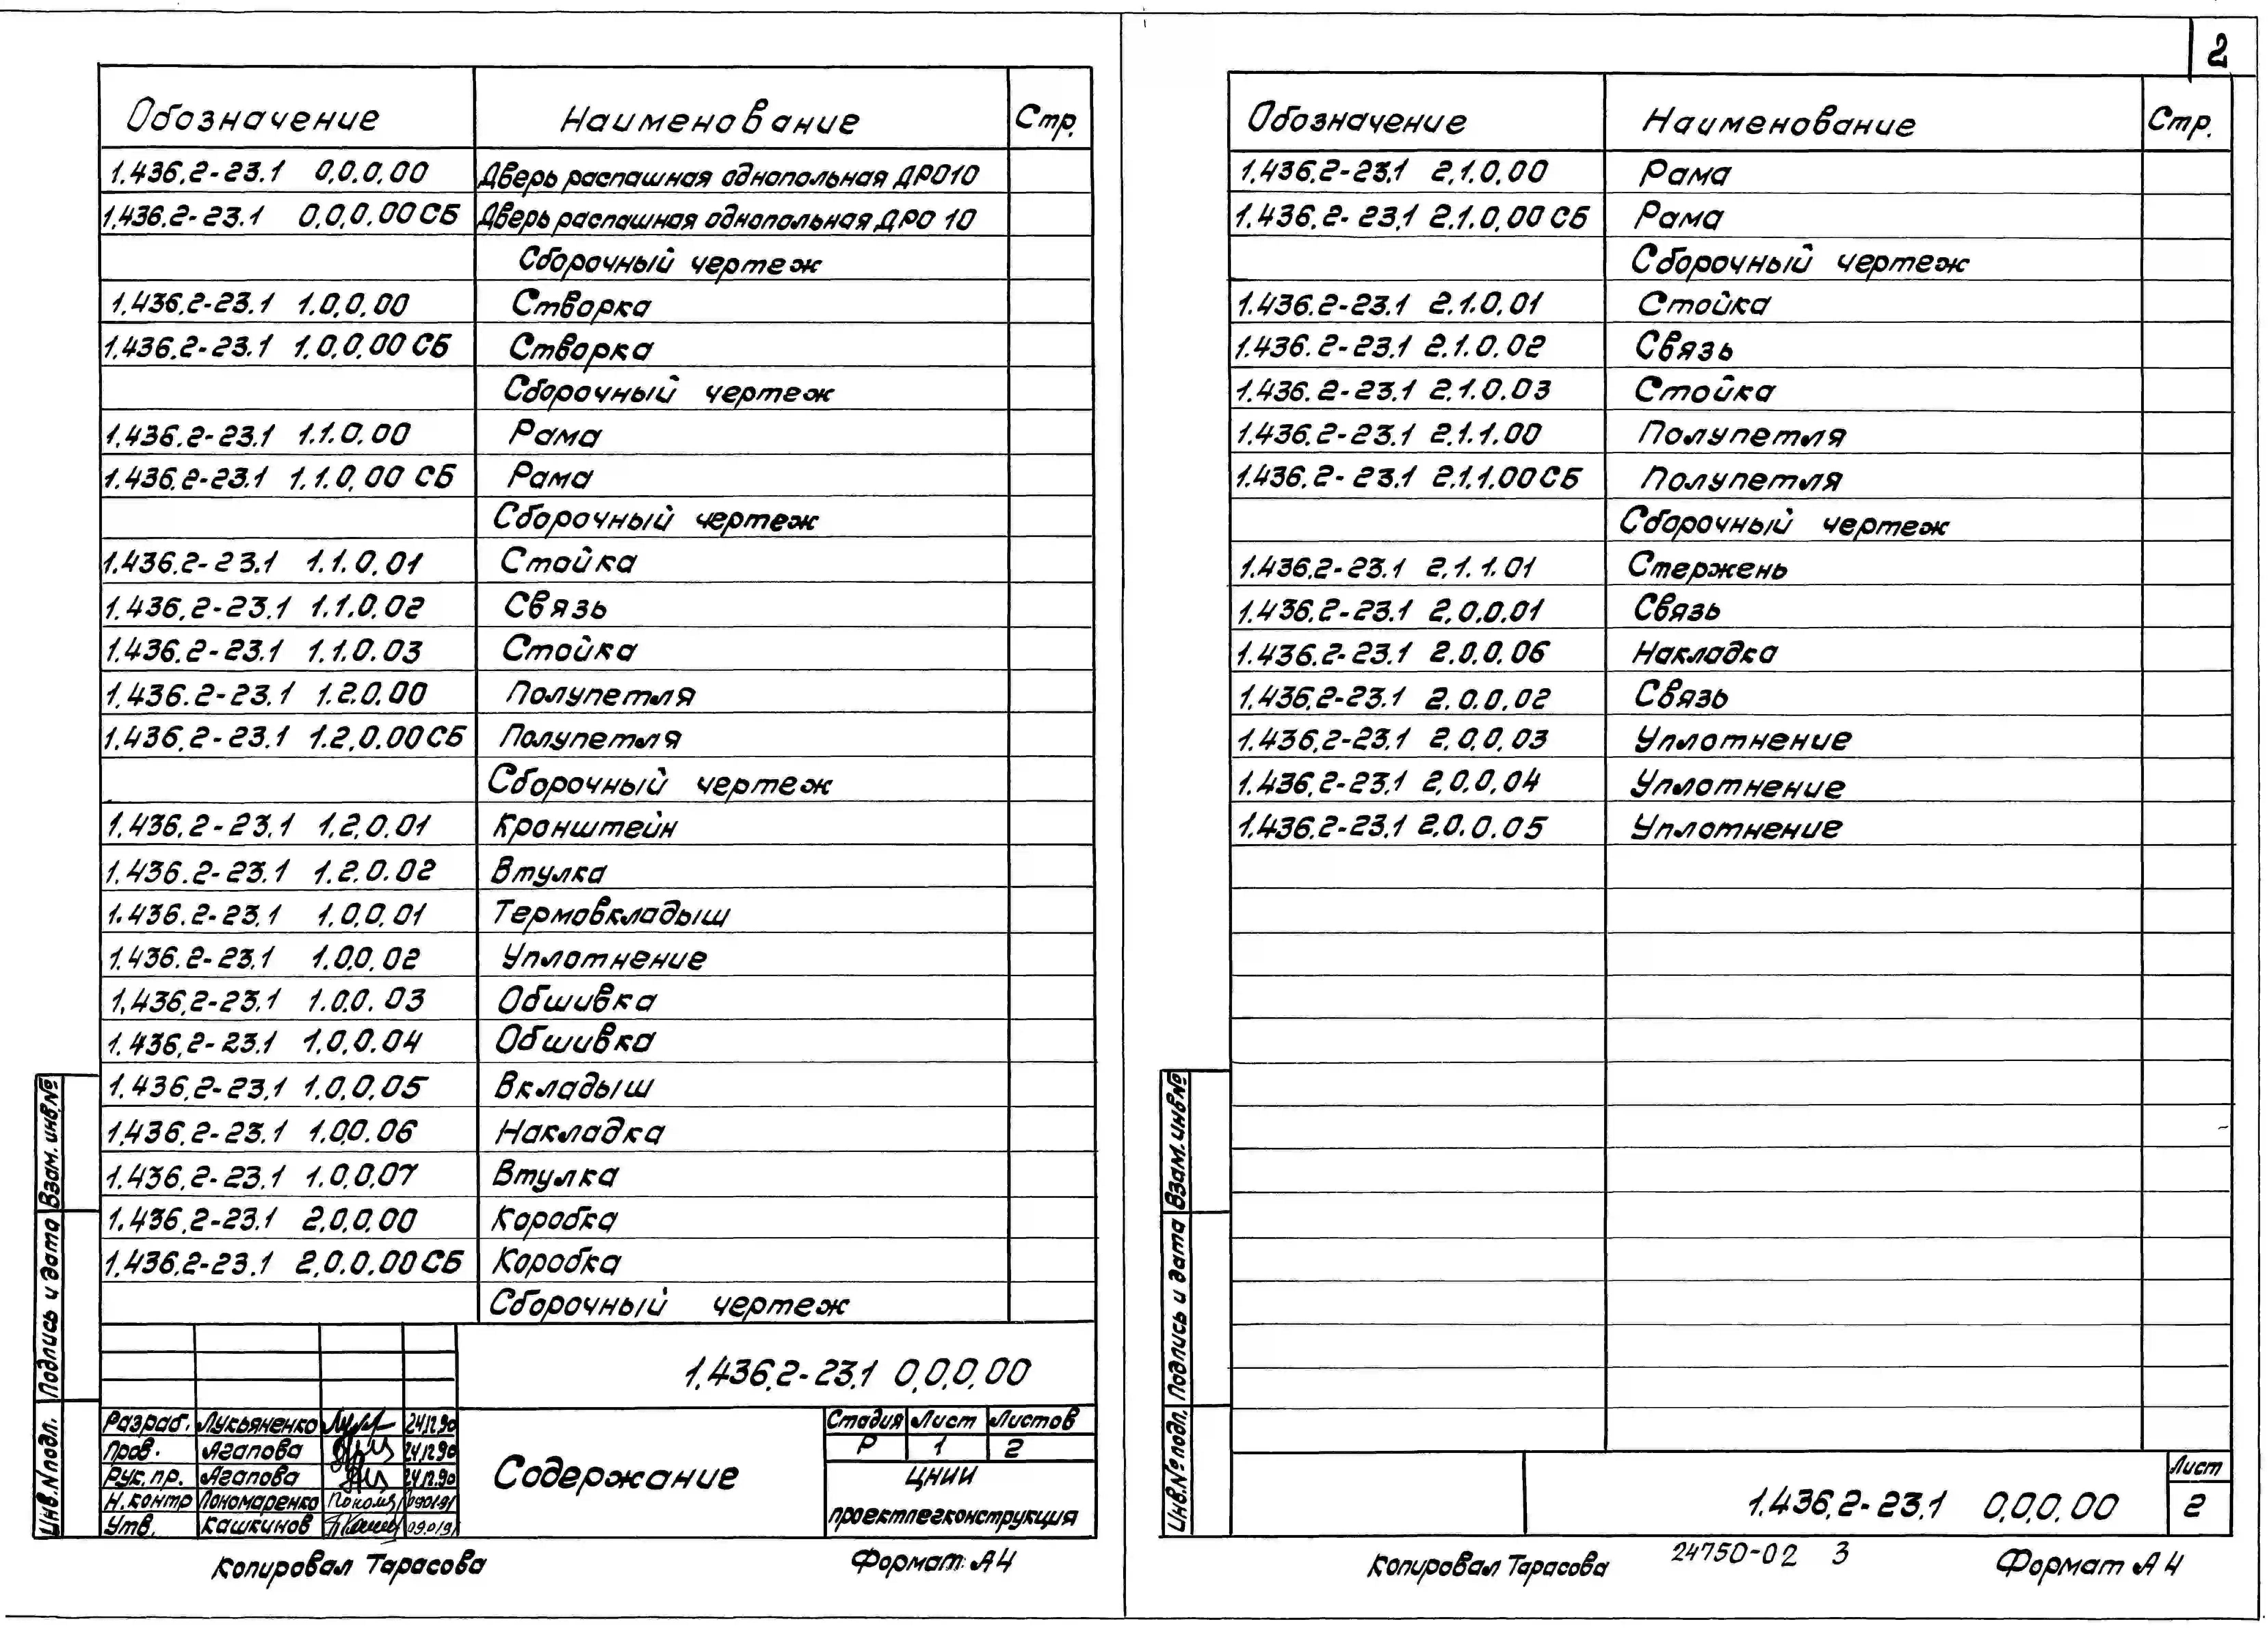 2
Обозначение Наименование Стр.
1.436.2-23.1 0.0.0.00 Дверь распашная однопольная ДРО10
1.436.2-23.1 0.0.0.00 СБ Дверь распашная однопольная ДРО 10
Сборочный чертеж
1.436.2-23.1 1.0.0.00 Створка
1.436.2-23.1 1.0.0.00 СБ Створка
Сборочный чертеж
1.436.2-23.1 1.1.0.00 Рама
1.436.2-23.1 1.1.0.00 СБ Рама
Сборочный чертеж
1.436.2-23.1 1.1.0.01 Стойка
1.436.2-23.1 1.1.0.02 Связь
1.436.2-23.1 1.1.0.03 Стойка
1.436.2-23.1 1.2.0.00 Полупетля
1.436.2-23.1 1.2.0.00 СБ Полупетля
Сборочный чертеж
1.436.2-23.1 1.2.0.01 Кронштейн
1.436.2-23.1 1.2.0.02 Втулка
1.436.2-23.1 1.0.0.01 Термовкладыш
1.436.2-23.1 1.0.0.02 Уплотнение
1.436.2-23.1 1.0.0.03 Обшивка
1.436.2-23.1 1.0.0.04 Обшивка
1.436.2-23.1 1.0.0.05 Вкладыш
1.436.2-23.1 1.0.0.06 Накладка
1.436.2-23.1 1.0.0.07 Втулка
1.436.2-23.1 2.0.0.00 Коробка
1.436.2-23.1 2.0.0.00 СБ Коробка
Сборочный чертеж
1.436.2-23.1 0.0.0.00
Разраб. Лукьяненко 24.12.90
Пров. Агапова 24.12.90
Рук. пр. Агапова 24.12.90
Н. контр Пономаренко 09.01.91
Утв. Кашкинов 09.01.91
Содержание
Стадия Лист Листов
Р 1 2
ЦНИИ
проектлегконструкция
Взам. инв.№
Подпись и дата
Инв.№подл.
Копировал Тарасова Формат: А4
Обозначение Наименование Стр.
1.436.2-23.1 2.1.0.00 Рама
1.436.2-23.1 2.1.0.00 СБ Рама
Сборочный чертеж
1.436.2-23.1 2.1.0.01 Стойка
1.436.2-23.1 2.1.0.02 Связь
1.436.2-23.1 2.1.0.03 Стойка
1.436.2-23.1 2.1.1.00 Полупетля
1.436.2-23.1 2.1.1.00 СБ Полупетля
Сборочный чертеж
1.436.2-23.1 2.1.1.01 Стержень
1.436.2-23.1 2.0.0.01 Связь
1.436.2-23.1 2.0.0.06 Накладка
1.436.2-23.1 2.0.0.02 Связь
1.436.2-23.1 2.0.0.03 Уплотнение
1.436.2-23.1 2.0.0.04 Уплотнение
1.436.2-23.1 2.0.0.05 Уплотнение
Взам. инв№
Подпись и дата
Инв.№ подл.
1.436.2-23.1 0.0.0.00
Лист
2
Копировал Тарасова 24750-02 3 Формат А4